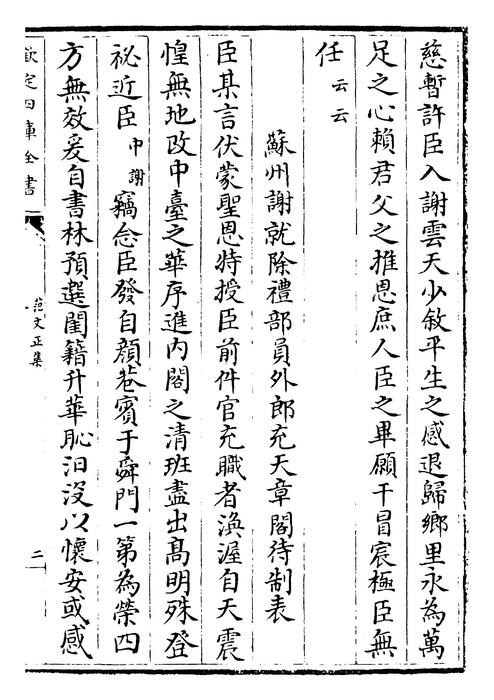 慈暫許臣入謝雲天少敘平生之感退歸鄉里永為萬
足之心賴君父之推恩庶人臣之畢願干冒宸極臣無
任云云
蘇州謝就除禮部員外郎充天章閣待制表
臣某言伏蒙聖恩特授臣前件官充職者渙渥自天震
惶無地改中臺之華序進内閣之清班盡出髙明殊登
祕近臣中謝竊念臣發自顔巷賓于舜門一第為榮四
方無效爰自書林預選閨籍升華恥汩沒以懷安或感
欽定四庫全書
范文正集
二